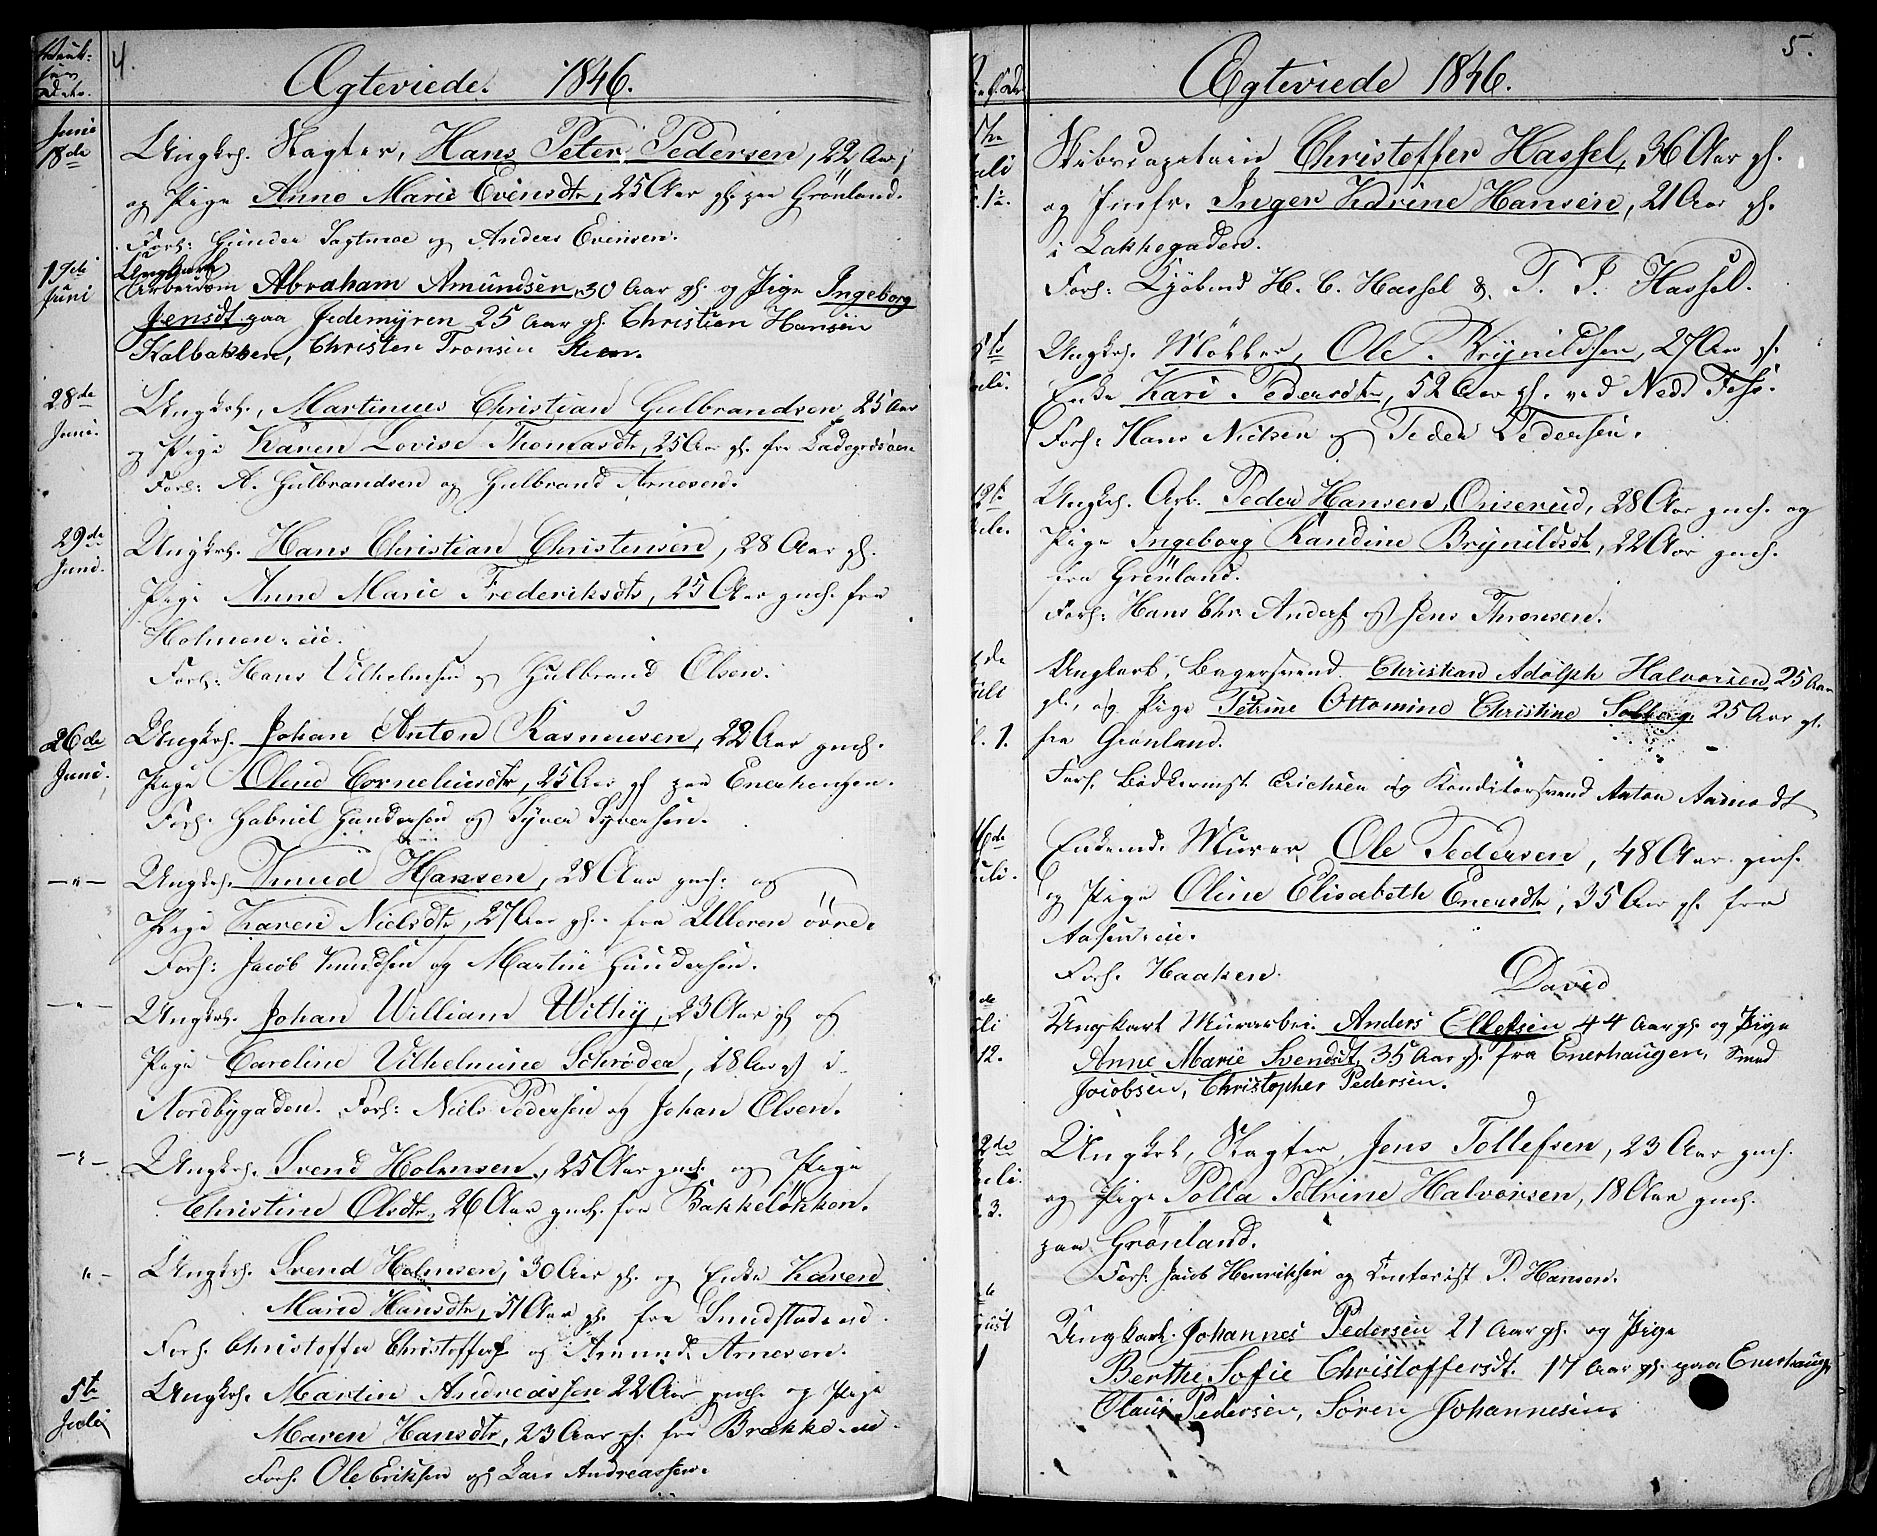 4.
Ægteviede. 1846.
Juni
18de
Ungkrl. Slagter, Hans Peter Pedersen, 22 Aar,
og Pige Anne Marie Evensdtr, 25 Aar gl. paa Grönland.
Forl: Gunder Sagtmoe og Anders Evensen.
19de
Juni
Ungkarl
Arbeidsm Abraham Amundsen, 30 Aar gl. og Pige Ingeborg
Jensdt. paa Jedemyren 25 Aar gl. Christian Hansen
Kalbakken, Christen Tronsen
28de
Juni.
Ungkrl., Martinus Christian Gulbrandsen 25 Aar
og Pige Karen Lovise Thomasdtr, 25 Aar gl. fra Ladegrdsöen
Forl: A. Gulbrandsen og Gulbrand Arnesen.
29de
Juni.
Ungkrl. Hans Christian Christensen, 28 Aar gl.
Pige Anne Marie Frederiksdtr, 25 Aar gml. fra
Holmen-eie.
Forl: Hans Vilhelmsen og Gulbrand Olsen.
26de
Juni.
Ungkrl. Johan Anton Rasmusen, 22 Aar gml.
Pige Oline Corneliusdtr, 25 Aar gl paa Enerhougen.
Forl: Gabriel Gundersen og Syver Syversen.
— " —
Ungkrl. Knud Hansen, 28 Aar gml. og
Pige Karen Nielsdtr, 27 Aar gl. fra Ulleren övre.
Forl: Jacob Knudsen og Martin Gundersen.
— " —
Ungkrl. Johan William Withy, 23 Aar gl og
Pige Caroline Vilhelmine Schrøder, 28 Aar gl i
Nordbygaden. Forl: Niels Pedersen og Johan Olsen.
— " —
Ungkrl. Svend Holmsen, 25 Aar gml. og Pige
Christine Olsdtr, 26 Aar gml. fra Bakkeløkken.
" —
Ungkrl. Svend Holmsen, 30 Aar gl. og Enke Karen
Marie Hansdtr, 51 Aar gl. fra
Forl. Christoffer Christoffers og Amund Arnesen.
5te
Juli
Ungkrl. Martin Andreassen 22 Aar gml. og Pige
Maren Hansdtr, 23 Aar gl. fra Brække-eie
Forl. Ole Eriksen og Lars Andreassen.
5.
Ægteviede 1846.
Skibscapitain Christoffer Hassel, 36 Aar gl.
og Jmfr. Inger Katrine Hansen, 21 Aar gl.
i Lakkegaden.
Forl: Kjöbmd H. C. Hassel & T. J. Hassel.
5te
uli.
Ungkrl. Möller, Ole Brynildsen, 27 Aar gl.
Enke Kari Pedersdtr, 52 Aar gl. ved Nedr Foss.
Forl: Hans Nielsen og Peder Pedersen.
Ungkrl. Arb. Peder Hansen Oniserud, 28 Aar gml. og
Pige Ingeborg Randine Brynildsdtr, 22 Aar gml.
fra Grönland.
Forl: Hans Chr. Anders og Jens Thronsen.
de
uli
1.
Ungkarl, Bagersvend Christian Adolph Halvorsen 25 Aar
gl., og Pige Petrine Ottomine Christine Solberg 25 Aar gl.
fra Grønland.
Forl. Bödkermst. Erichsen og Konditorsvend Anton Aamodt
uli.
Enkemd. Murer, Ole Pedersen, 48 Aar gml.
og Pige Oline Elisabeth Enersdtr, 35 Aar gl. fra
Aasen-eie.
Forl. Haaken. David
de
uli
12.
Ungkarl Murarbei. Anders Ellefsen 44 Aar gl. og Pige
Anne Marie Svendsdt. 35 Aar gl. fra Enerhaugen, Knud
Jacobsen, Christopher Pedersen.
2de
uli.
3.
Ungkrl, Slagter, Jens Tollefsen, 23 Aar gml.
og Pige Polla Petrine Halvorsen, 18 Aar gml.
paa Grönland.
Forl. Jacob Henriksen og Contorist P. Hansen.
gust
Ungkarl. Johannes Pedersen 21 Aar gl. og Pige
Berthe Sofie Christoffersdt. 17 Aar gl. paa Enerhaug
Olaus Pedersen, Søren Johannesen.